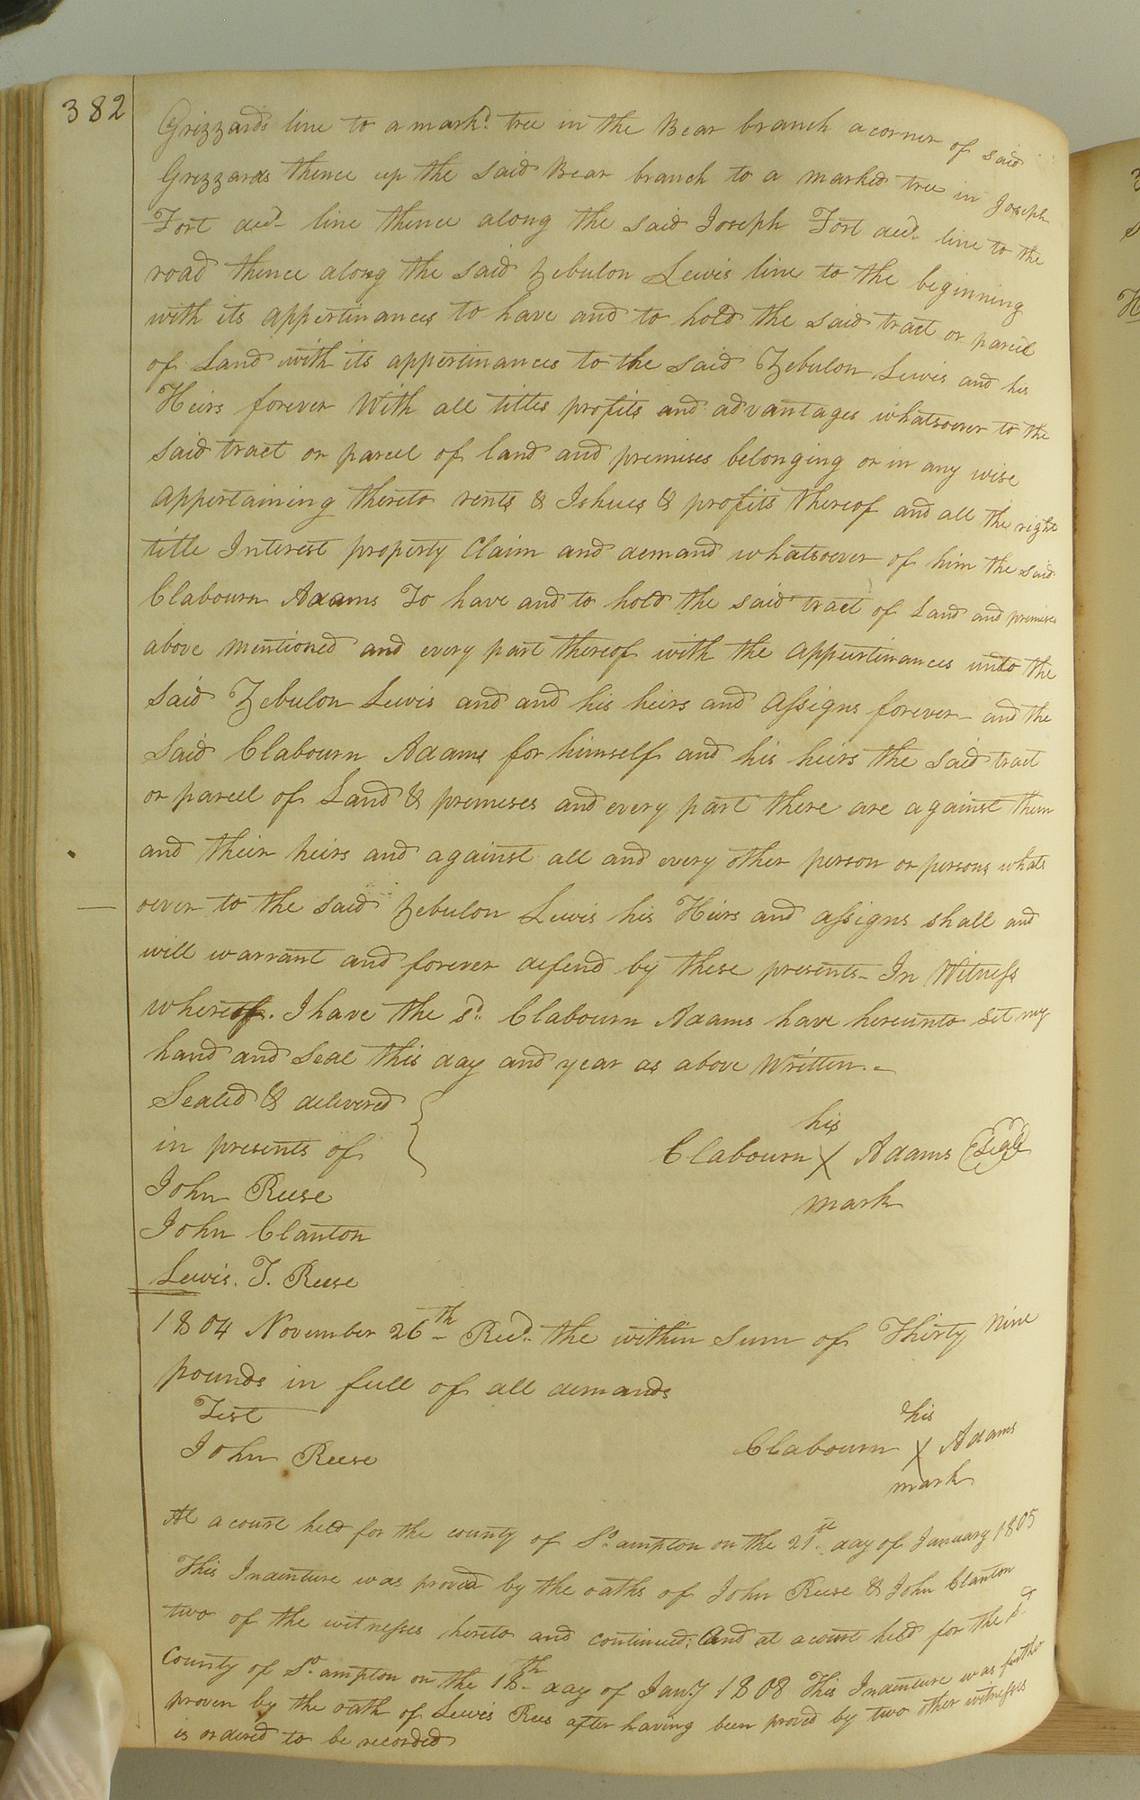 382
Grizzards line to a markd. tree in the Bear branch a corner of said
Grizzards thence up the said Bear branch to a marked tree in Joseph
Fort decd. line thence along the said Joseph Fort decd. line to the
road thence along the said Zebulon Lewis line to the beginning
with its appertinances to have and to hold the said tract or parcel
of Land with its appertinances to the said Zebulon Lewis and his
Heirs forever With all titles profits and advantages whatsoever to the
said tract or parcel of land and premises belonging or in any wise
appertaining thereto rents & Ishues & profits thereof and all the right
title Interest property Claim and demand whatsoever of him the said
Clabourn Adams To have and to hold the said tract of Land and premises
above mentioned and every part thereof with the appurtinances unto the
said Zebulon Lewis and and his heirs and assigns forever and the
said Clabourn Adams for himself and his heirs the said tract
or parcel of Land & premeses and every part there are against them
and their heirs and against all and every other person or persons whats
oever to the said Zebulon Lewis his Heirs and assigns shall and
will warrant and forever defend by these presents - In Witness
whereof. I have the sd. Clabourn Adams have hereunto set my
hand and Seal this day and year as above Written.
Sealed & delivered
in presents of
his
Clabourn X Adams Seal
mark
John Reese
John Clanton
Lewis. T. Reese
1804 November 26th Recd. the within Sum of Thirty nine
pounds in full of all demands
Test
John Reese
his
Clabourn X Adams
mark
At a court held for the county of So.ampton on the 21st. day of January 1805
This Indenture was proved by the oaths of John Reese & John Clanton
two of the witnesses hereto and continued; And at a court held for the sd.
County of So.ampton on the 18th day of Jany 1808 This Indenture was further
proven by the oath of Lewis Rees after having been proved by two other witnesses
is ordered to be recorded